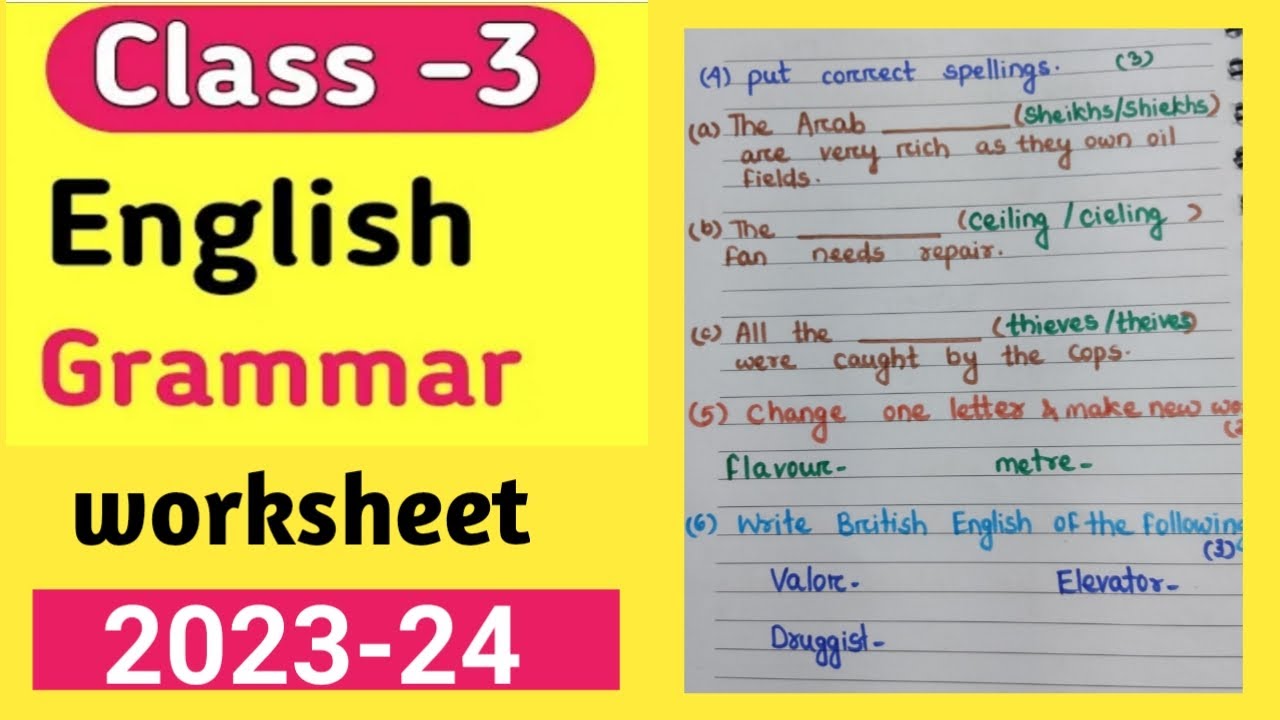 Class -3
English
Grammar
worksheet
2023-24
(4) put correct spellings. (3)
(a) The Arab ________ (Sheikhs/Shiekhs)
are very rich as they own oil
fields.
(b) The ________ (ceiling / cieling )
fan needs repair.
(c) All the ________ (thieves/theives)
were caught by the cops.
(5) Change one letter & make new
flavour- metre-
(6) Write British English of the following
(3)
Valor- Elevator-
Druggist-